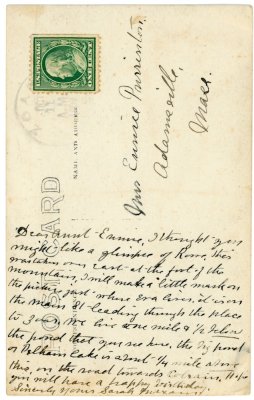 Miss Eunice Purrinton.
Adamsville,
Mass.
NAME AND ADDRESS
POST CARD
ONE CENT
Dear Aunt Eunice, I thought you
might like a glimpse of Rowe, this
was taken over east at the foot of the
mountains, I will make a little mark on
the picture just where Era lives, it is on
the main St leading through the place
to you. We live one mile & ½ below
the pond that you see here, the big pond
or Pelham Lake is about ½ mile above
this, on the road towards Hope
you will have a happy birthday.
Sincerly Yours Sarah